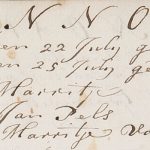 NNO
en 22 July ge
en 25 July ge
Marritje
Jan Pels
Marritje va